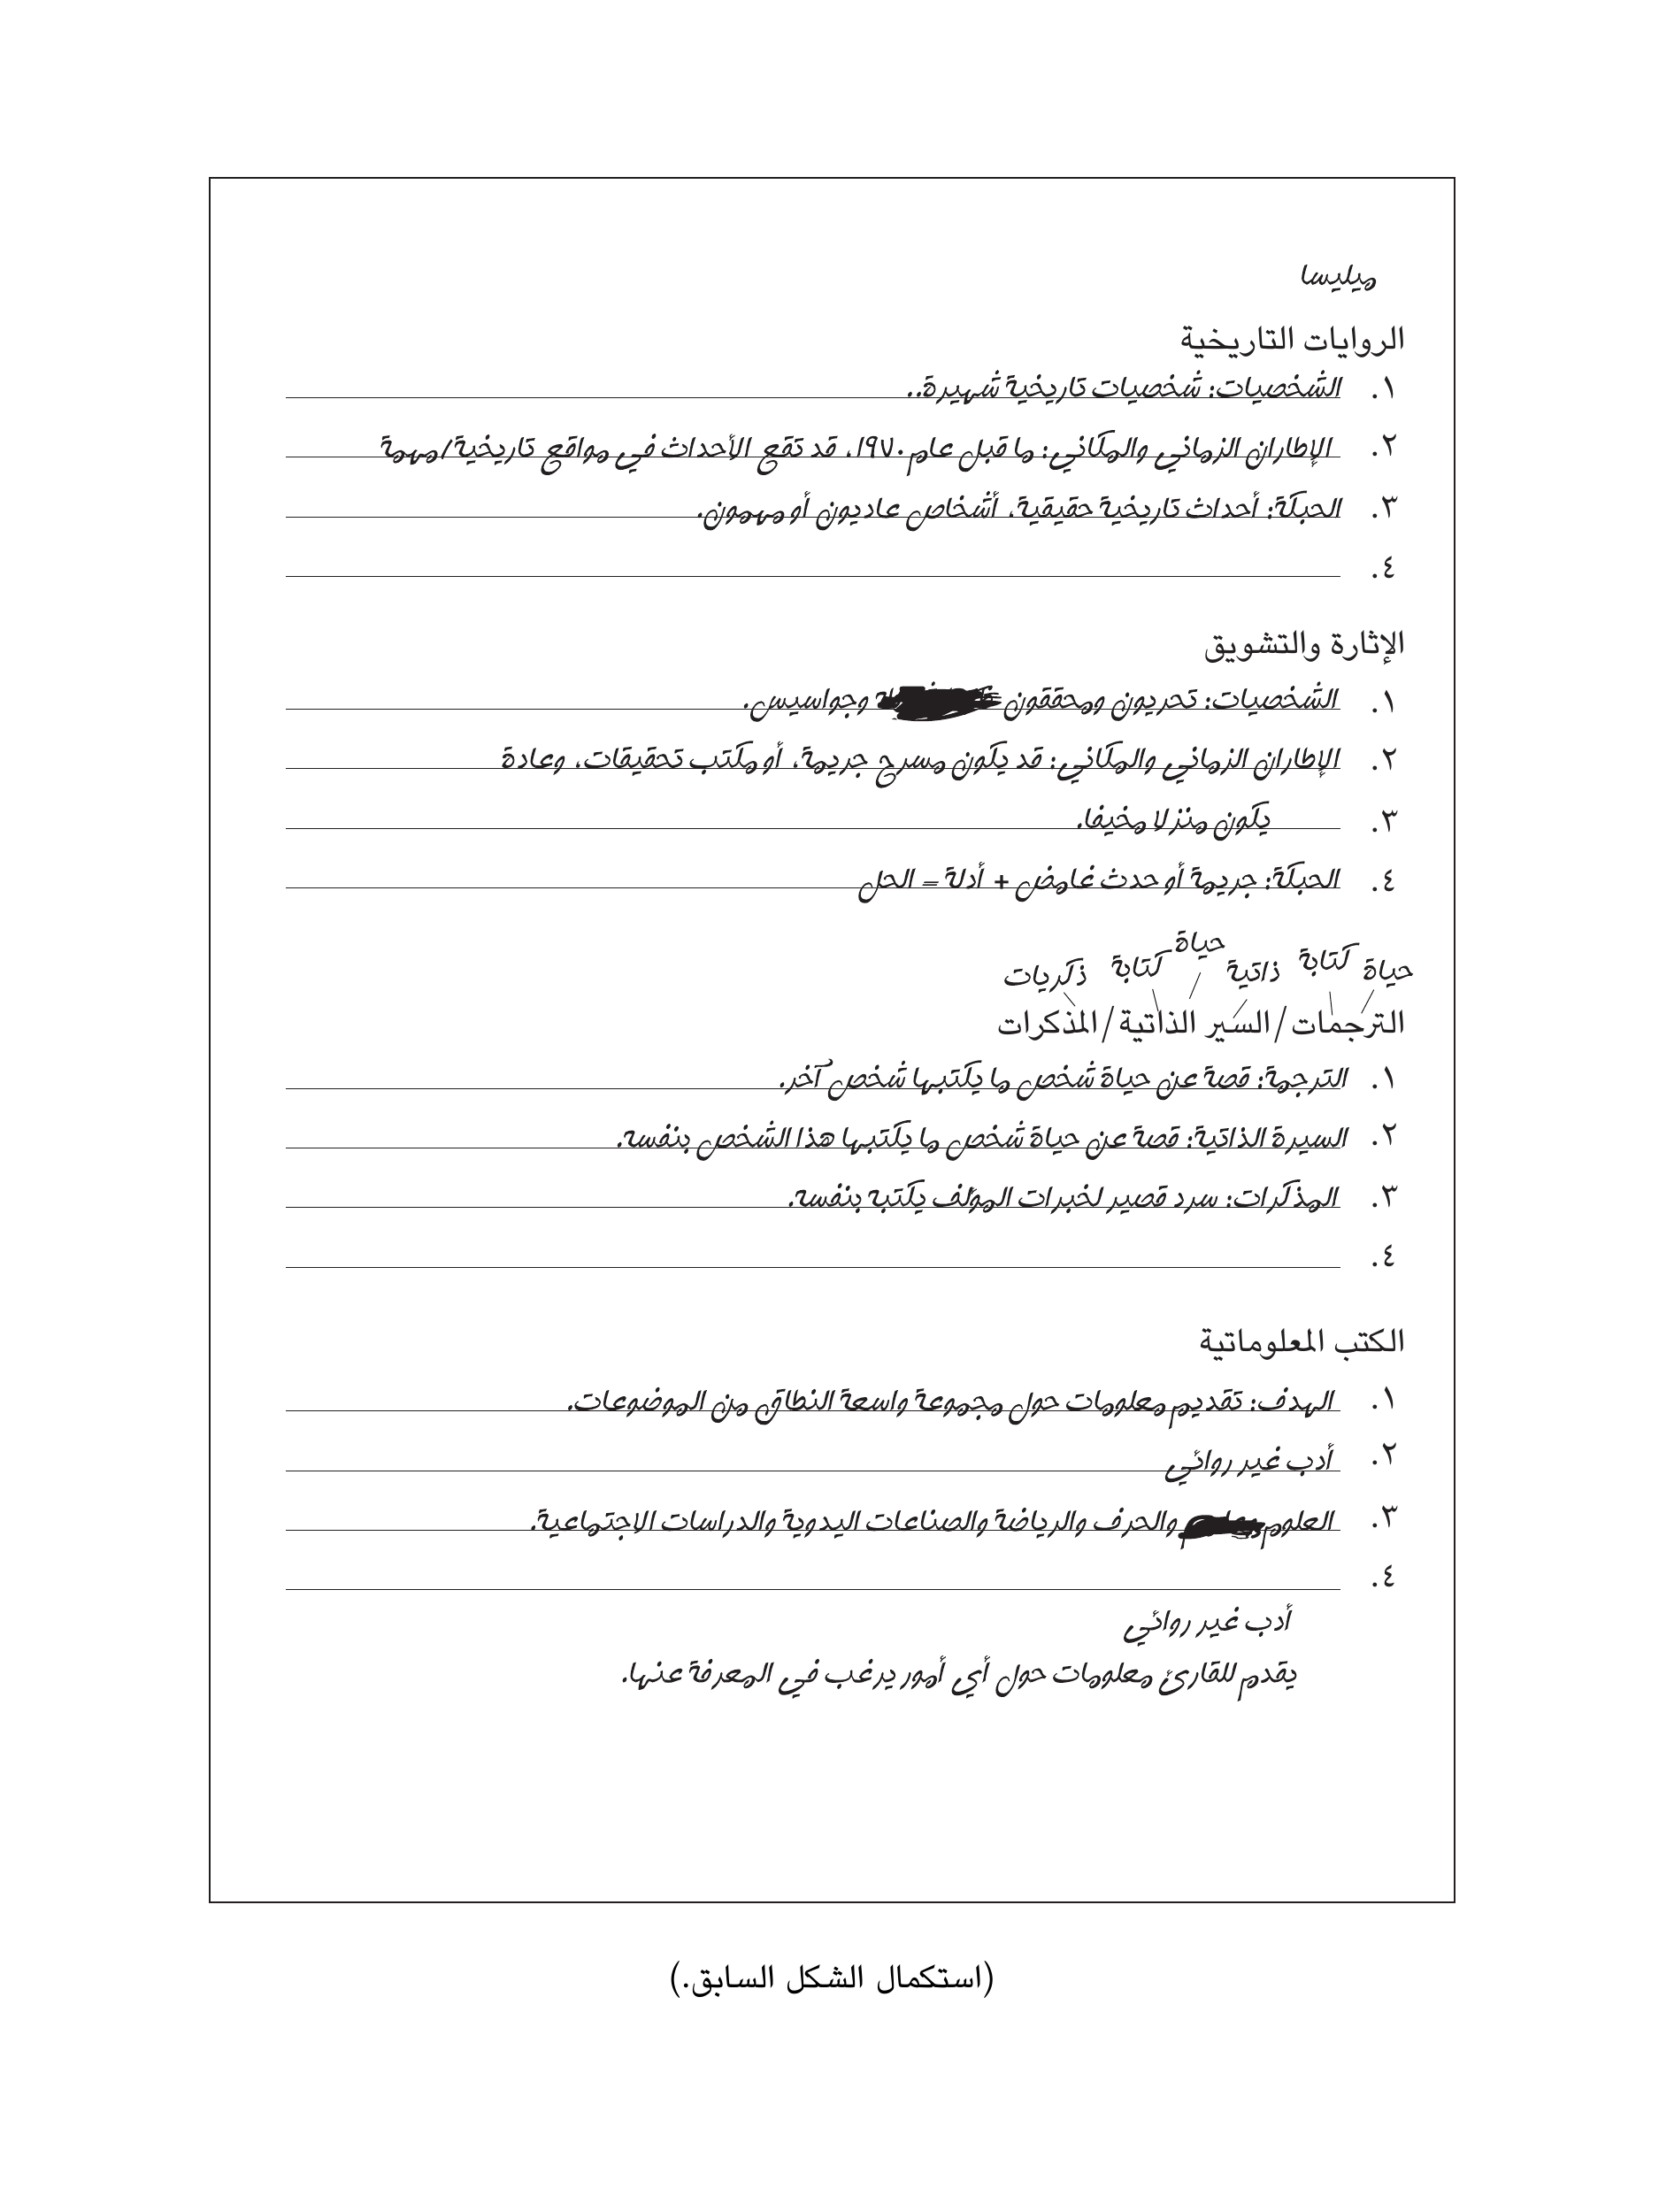 ميليسا
الروايات التاريخية
١. الشخصيات: شخصيات تاريخية شهيرة..
٢. الإطاران الزماني والمكاني: ما قبل عام ١٩٧٠، قد تقع الأحداث في مواقع تاريخية/مهمة
٣. الحبكة: أحداث تاريخية حقيقية، أشخاص عاديون أو مهمون.
٤.
الإثارة والتشويق
١. الشخصيات: تحريون ومحققون وجواسيس.
٢. الإطاران الزماني والمكاني: قد يكون مسرح جريمة، أو مكتب تحقيقات، وعادة
٣. يكون منزلا مخيفا.
٤. الحبكة: جريمة أو حدث غامض + أدلة = الحل
حياة كتابة ذاتية حياة كتابة ذكريات
الترجمات/السير الذاتية/المذكرات
١. الترجمة: قصة عن حياة شخص ما يكتبها شخص آخر.
٢. السيرة الذاتية: قصة عن حياة شخص ما يكتبها هذا الشخص بنفسه.
٣. المذكرات: سرد قصير لخبرات المؤلف يكتبه بنفسه.
٤.
الكتب المعلوماتية
١. الهدف: تقديم معلومات حول مجموعة واسعة النطاق من الموضوعات.
٢. أدب غير روائي
٣. العلوم والحرف والرياضة والصناعات اليدوية والدراسات الاجتماعية.
٤.
أدب غير روائي
يقدم للقارئ معلومات حول أي أمور يرغب في المعرفة عنها.
(استكمال الشكل السابق.)